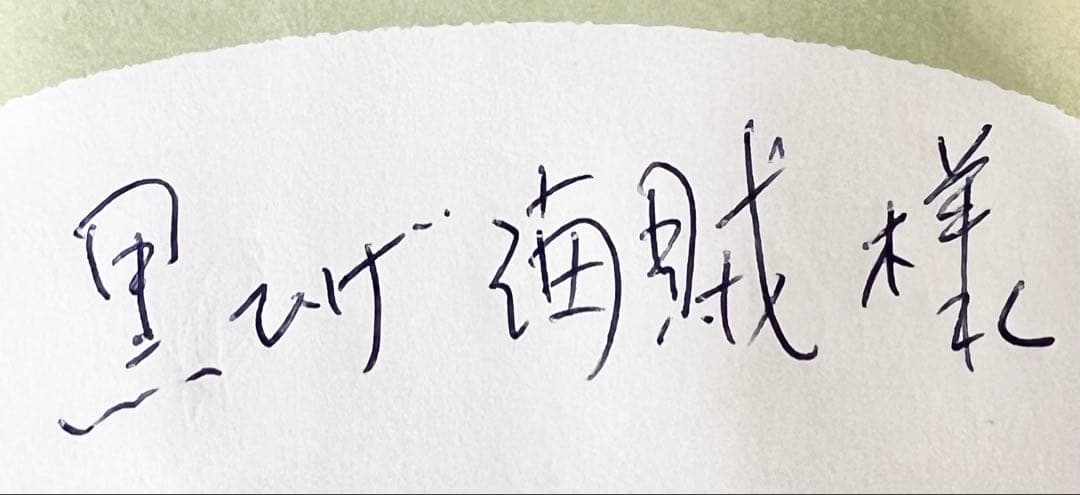 黒ひげ 海賊 様